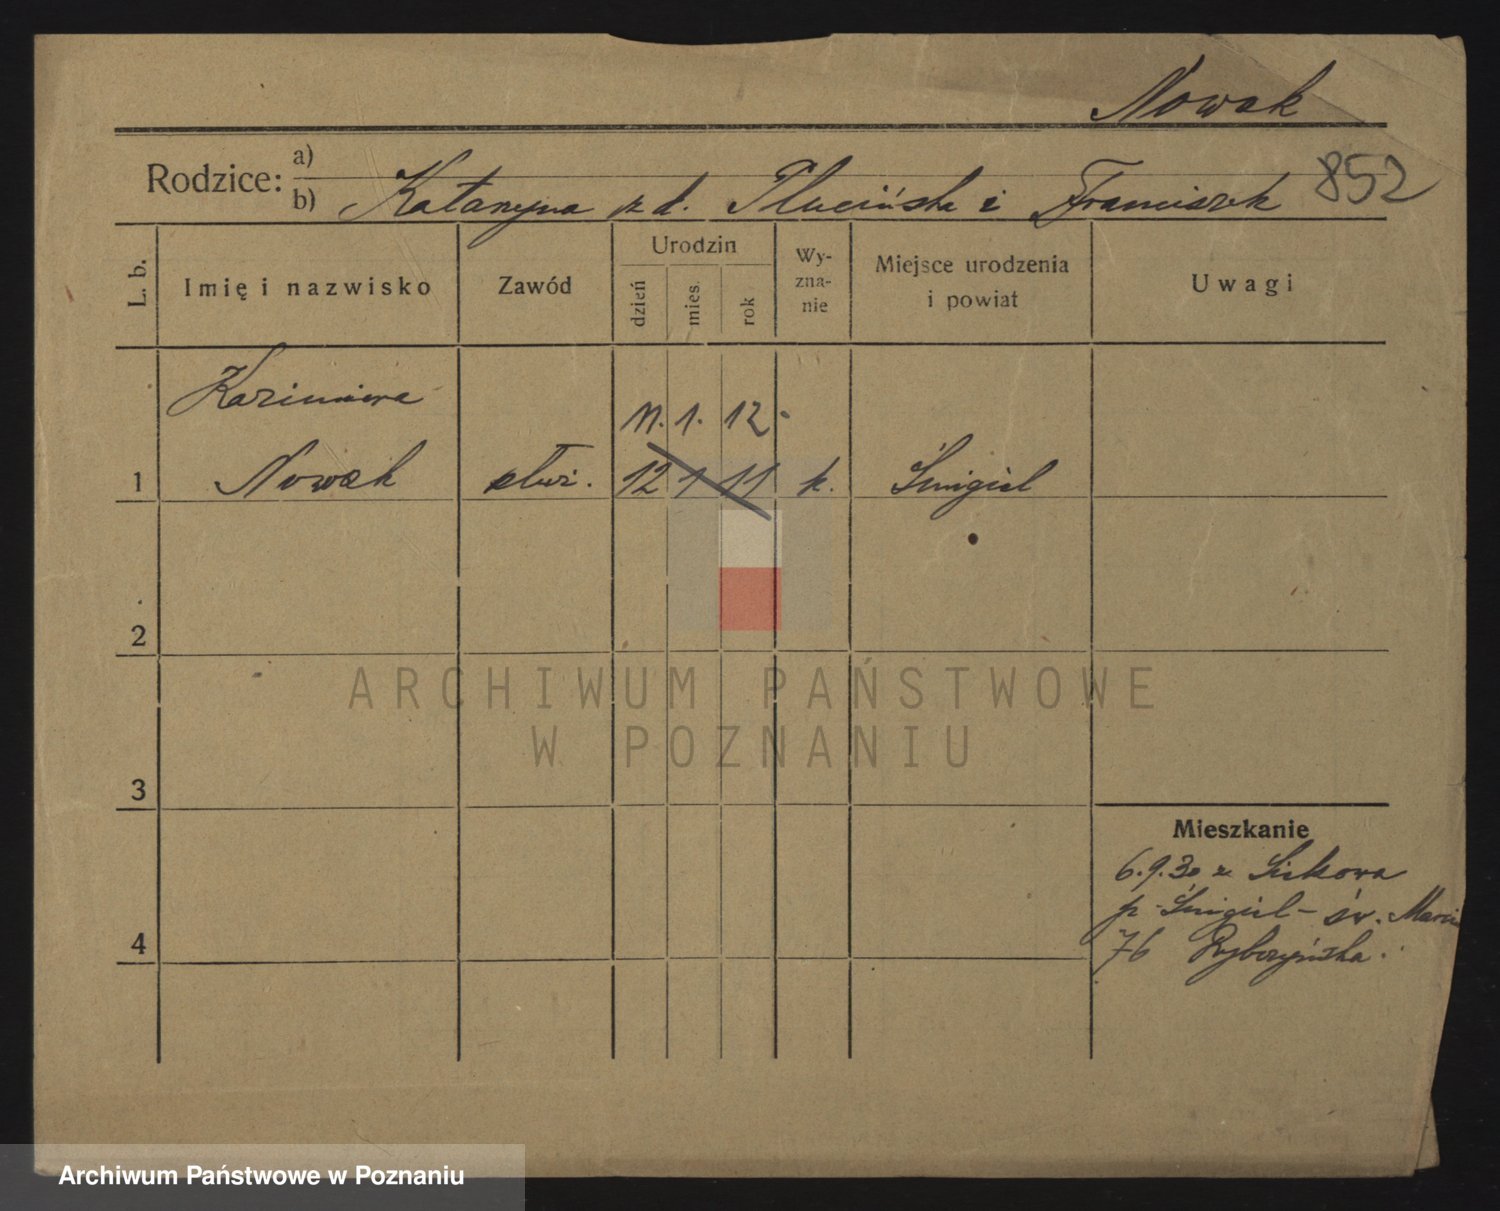 Nowak
Rodzice:
a)
b) Katarzyna z d. Plucińska i Franciszek
852
L. b.
Imię i nazwisko
Zawód
Urodzin
dzień
mies.
rok
Wy-
zna-
nie
Miejsce urodzenia
i powiat
Uwagi
Kazimiera
11. 1. 12.
1 Nowak służ. 12 1 11 k. Śmigiel
2
3
4
Mieszkanie
6.9.30 z
p. Śmigiel - św. Marcin
76 Rybczyńska.
ARCHIWUM PAŃSTWOWE
W POZNANIU
Archiwum Państwowe w Poznaniu